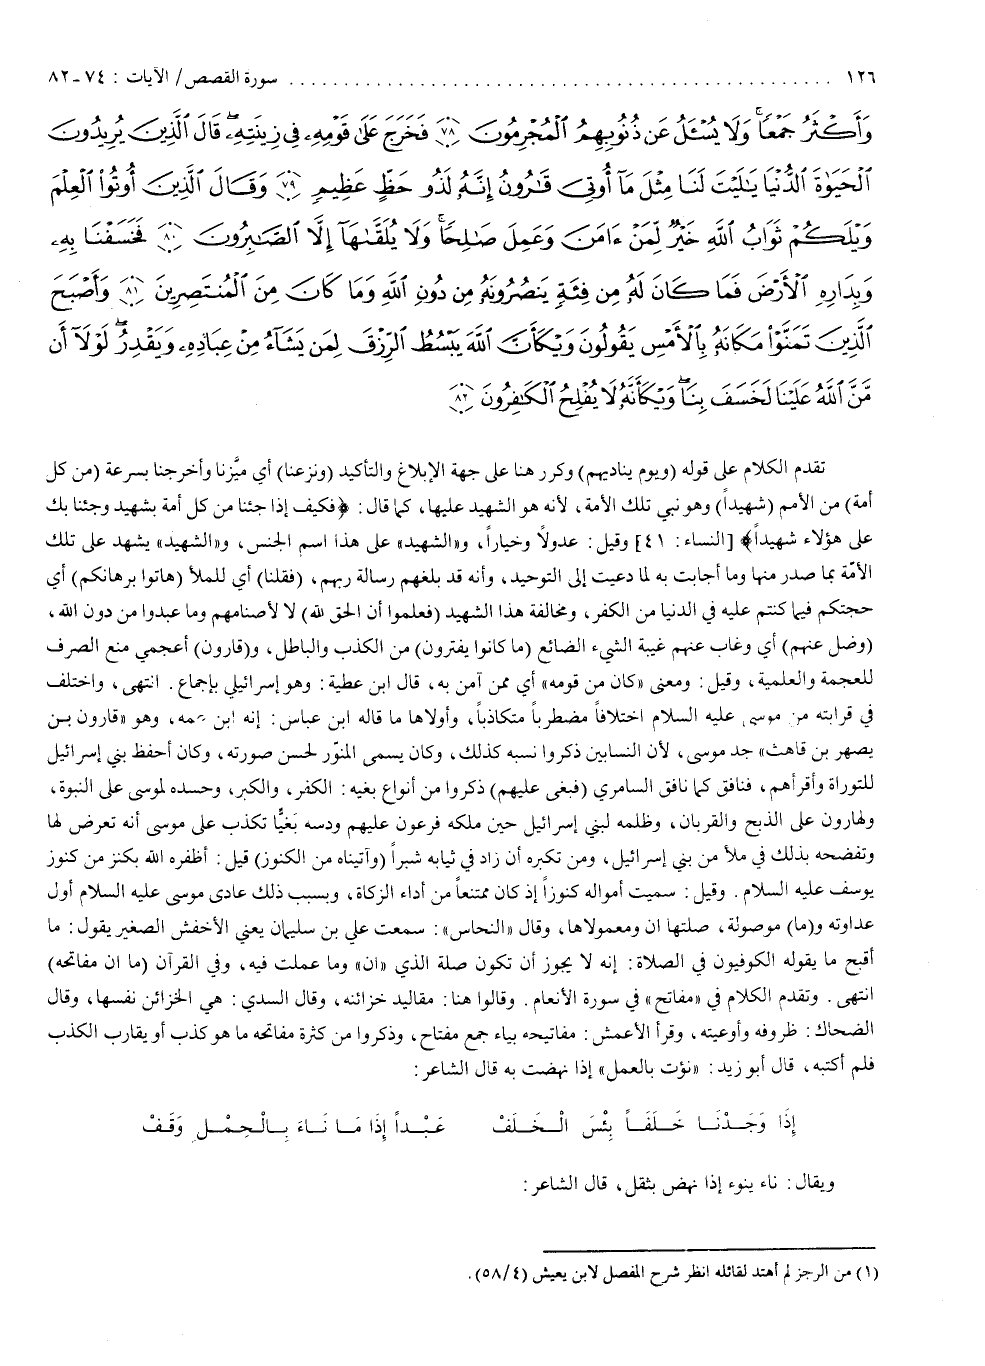 ١٢٦ ........................................ سورة القصص/ الآيات : ٧٤-٨٢
وَأَكْثَرُ جَمْعًا وَلَا يُسْـَٔلُ عَن ذُنُوبِهِمُ ٱلْمُجْرِمُونَ ﴿٧٨﴾ فَخَرَجَ عَلَىٰ قَوْمِهِۦ فِى زِينَتِهِۦ قَالَ ٱلَّذِينَ يُرِيدُونَ
ٱلْحَيَوٰةَ ٱلدُّنْيَا يَـٰلَيْتَ لَنَا مِثْلَ مَآ أُوتِىَ قَـٰرُونُ إِنَّهُۥ لَذُو حَظٍّ عَظِيمٍ ﴿٧٩﴾ وَقَالَ ٱلَّذِينَ أُوتُوا۟ ٱلْعِلْمَ
وَيْلَكُمْ ثَوَابُ ٱللَّهِ خَيْرٌ لِّمَنْ ءَامَنَ وَعَمِلَ صَـٰلِحًا وَلَا يُلَقَّىٰهَآ إِلَّا ٱلصَّـٰبِرُونَ ﴿٨٠﴾ فَخَسَفْنَا بِهِۦ
وَبِدَارِهِ ٱلْأَرْضَ فَمَا كَانَ لَهُۥ مِن فِئَةٍ يَنصُرُونَهُۥ مِن دُونِ ٱللَّهِ وَمَا كَانَ مِنَ ٱلْمُنتَصِرِينَ ﴿٨١﴾ وَأَصْبَحَ
ٱلَّذِينَ تَمَنَّوْا۟ مَكَانَهُۥ بِٱلْأَمْسِ يَقُولُونَ وَيْكَأَنَّ ٱللَّهَ يَبْسُطُ ٱلرِّزْقَ لِمَن يَشَآءُ مِنْ عِبَادِهِۦ وَيَقْدِرُ لَوْلَآ أَن
مَّنَّ ٱللَّهُ عَلَيْنَا لَخَسَفَ بِنَا وَيْكَأَنَّهُۥ لَا يُفْلِحُ ٱلْكَـٰفِرُونَ ﴿٨٢﴾
تقدم الكلام على قوله (ويوم يناديهم) وكرر هنا على جهة الإبلاغ والتأكيد (ونزعنا) أي ميَّزنا وأخرجنا بسرعة (من كل
أمة) من الأمم (شهيداً) وهو نبي تلك الأمة، لأنه هو الشهيد عليها، كما قال: ﴿فكيف إذا جئنا من كل أمة بشهيد وجئنا بك
على هؤلاء شهيداً﴾ [النساء: ٤١] وقيل: عدولاً وخياراً، و«الشهيد» على هذا اسم الجنس، و«الشهيد» يشهد على تلك
الأمّة بما صدر منها وما أجابت به لما دعيت إلى التوحيد، وأنه قد بلغهم رسالة ربهم، (فقلنا) أي للملأ (هاتوا برهانكم) أي
حجتكم فيما كنتم عليه في الدنيا من الكفر، ومخالفة هذا الشهيد (فعلموا أن الحق لله) لا لأصنامهم وما عبدوا من دون الله،
(وضل عنهم) أي وغاب عنهم غيبة الشيء الضائع (ما كانوا يفترون) من الكذب والباطل، و(قارون) أعجمي منع الصرف
للعجمة والعلمية، وقيل: ومعنى «كان من قومه» أي ممن آمن به، قال ابن عطية: وهو إسرائيلي بإجماع. انتهى، واختلف
في قرابته من موسى عليه السلام اختلافاً مضطرباً متكاذباً، وأولاها ما قاله ابن عباس: إنه ابن عمه، وهو «قارون بن
يصهر بن قاهث» جد موسى، لأن النسابين ذكروا نسبه كذلك، وكان يسمى المنوّر لحسن صورته، وكان أحفظ بني إسرائيل
للتوراة وأقرأهم، فنافق كما نافق السامري (فبغى عليهم) ذكروا من أنواع بغيه: الكفر، والكبر، وحسده لموسى على النبوة،
ولهارون على الذبح والقربان، وظلمه لبني إسرائيل حين ملكه فرعون عليهم ودسه بَغيًّا تكذب على موسى أنه تعرض لها
وتفضحه بذلك في ملأ من بني إسرائيل، ومن تكبره أن زاد في ثيابه شبراً (وآتيناه من الكنوز) قيل: أظفره الله بكنز من كنوز
يوسف عليه السلام. وقيل: سميت أمواله كنوزاً إذ كان ممتنعاً من أداء الزكاة، وبسبب ذلك عادى موسى عليه السلام أول
عداوته و(ما) موصولة، صلتها ان ومعمولاها، وقال «النحاس»: سمعت علي بن سليمان يعني الأخفش الصغير يقول: ما
أقبح ما يقوله الكوفيون في الصلاة: إنه لا يجوز أن تكون صلة الذي «ان» وما عملت فيه، وفي القرآن (ما ان مفاتحه)
انتهى. وتقدم الكلام في «مفاتح» في سورة الأنعام. وقالوا هنا: مقاليد خزائنه، وقال السدي: هي الخزائن نفسها، وقال
الضحاك: ظروفه وأوعيته، وقرأ الأعمش: مفاتيحه بياء جمع مفتاح، وذكروا من كثرة مفاتحه ما هو كذب أو يقارب الكذب
فلم أكتبه، قال أبو زيد: «نؤت بالعمل» إذا نهضت به قال الشاعر:
إِذَا وَجَدْنَا خَلَفَاً بِئْسَ الْخَلَفْ عَبْداً إِذَا مَا نَاءَ بِالْحِمْلِ وَقَفْ
ويقال: ناء ينوء إذا نهض بثقل، قال الشاعر:
(١) من الرجز لم أهتد لقائله انظر شرح المفصل لابن يعيش (٥٨/٤).